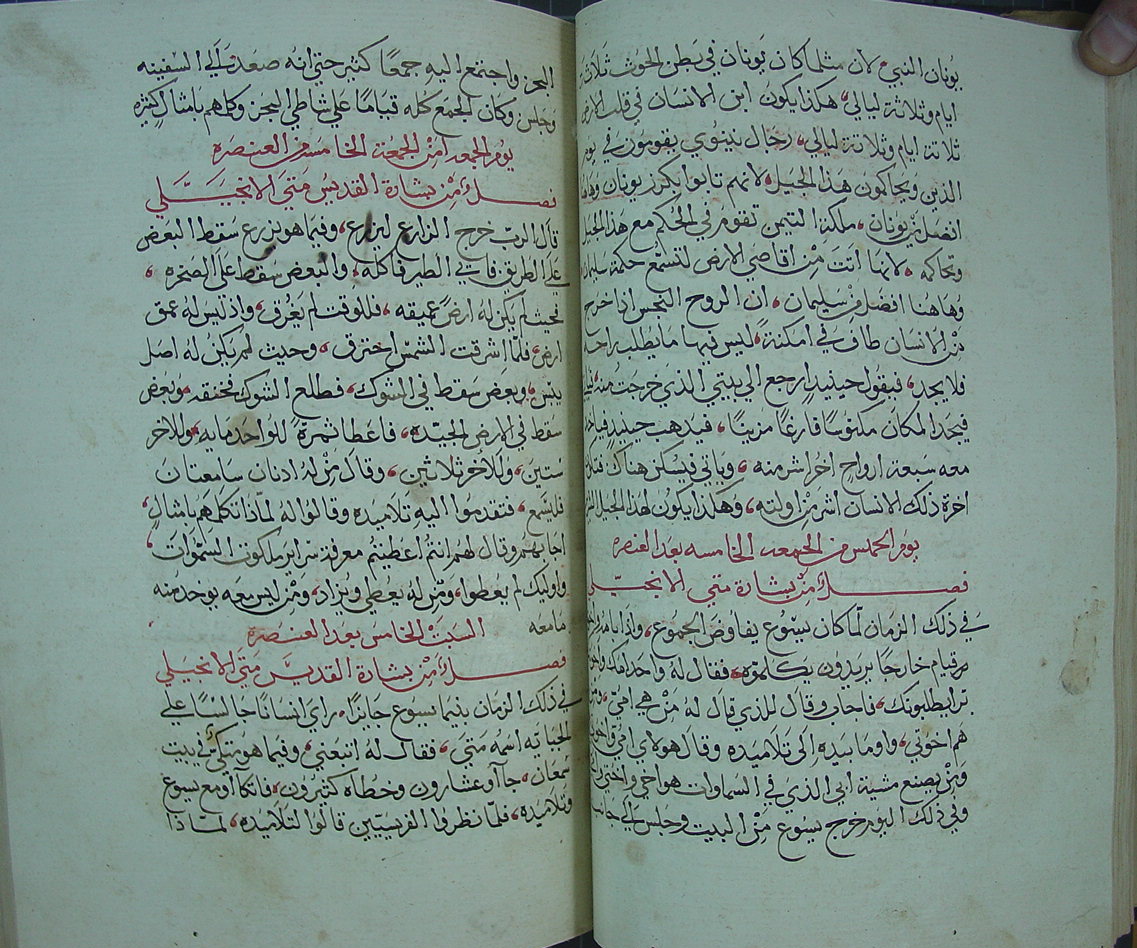 يونان النبي، لان مثلما كان يونان في بطن الحوث ثلاثة
ايام وثلاثة ليالي، هكذا يكون ابن الانسان في قلب الارض
ثلاثة ايام وثلاثة ليالي، رجال نينوي يقومون في يوم
الدين ويحاكمون هذا الجيل، لانهم تابوا بكرز يونان وهاهنا
افضل من يونان، ملكة التيمن تقوم في الحكم مع هذا الجيل
وتحاكمه، لانها اتت من اقاصي الارض لتستمع حكمة سليمان
وهاهنا افضل من سليمان، ان الروح النجس اذا خرج
من الانسان طاف في امكنة ليس فيها ما يطلب راحه
فلا يجد، فيقول حينيد ارجع الي بيتي الذي خرجت منه،
فيجد المكان مكنوسًا فارغًا مزينًا، فيدهب حينيد فياخد
معه سبعة ارواح اخر اشر منه، وياتي فيسكن هناك
اخرة ذلك الانسان اشر من اولته، وهكذا يكون لهذا الجيل
يوم الخميس من الجمعه الخامسه بعد العنصره
فصل من بشارة متي الانجيلي
في ذلك الزمان لما كان يسوع يفاوض الجموع، واذا بامه
قيام خارجًا يريدون يكلموه، فقال له واحد امك
برا يطلبونك، فاجاب وقال للذي قال له من هي امي،
هم اخوتي، واوما بيده الي تلاميده وقال هولاي امي واخوتي
ومن يصنع مشية ابي الذي في السماوات هو اخي واختي
وفي ذلك اليوم خرج يسوع من البيت وجلس علي جانب
البحر، واجتمع اليه جمعًا كثير حتي انه صعد الي السفينه
وجلس وكان الجمع كله قيامًا علي شاطي البحر وكلمهم بامثال كثيره
يوم الجمعه من الجمعة الخامسه من العنصره
فصل من بشارة القديس متي الانجيلي
قال الرب خرج الزارع ليزرع، وفيما هو يزرع سقط البعض
علي الطريق فاتي الطير فاكله، والبعض سقط علي الصخره،
بحيث لم يكن له ارض عميقه، فللوقت لم يغرق، واذ ليس له عمق
ارض، فلما اشرقت الشمس احترق، وحيث لم يكن له اصل
يبس، وبعض سقط في الشوك، فطلع الشوك فخنقه، وبعض
سقط في الارض الجيده، فاعطا ثمرة للواحد مايه، وللاخر
ستين، وللاخر ثلاثين، وقال من له ادنان سامعتان
فليسمع، فتقدموا اليه تلاميده وقالوا له لماذا تكلمهم بامثال،
اجابهم وقال لهم انتم اعطيتم معرفة سراير ملكوت السموات،
واوليك لم يعطوا، ومن له يعطي ويزاد، ومن ليس معه يوخد منه
ما معه السبت الخامس بعد العنصره
فصل من بشارة القديس متي الانجيلي
في ذلك الزمان بنيما يسوع جايزًا، راي انسانًا جالسًا علي
الجبايه اسمه متي، فقال له اتبعني، وفيما هو متكي في بيت
سمعان، جاآو عشارون وخطاه كثيرون، فاتكاآو مع يسوع
وتلاميده، فلما نظروا الفريسيين قالوا لتلاميده، لماذا